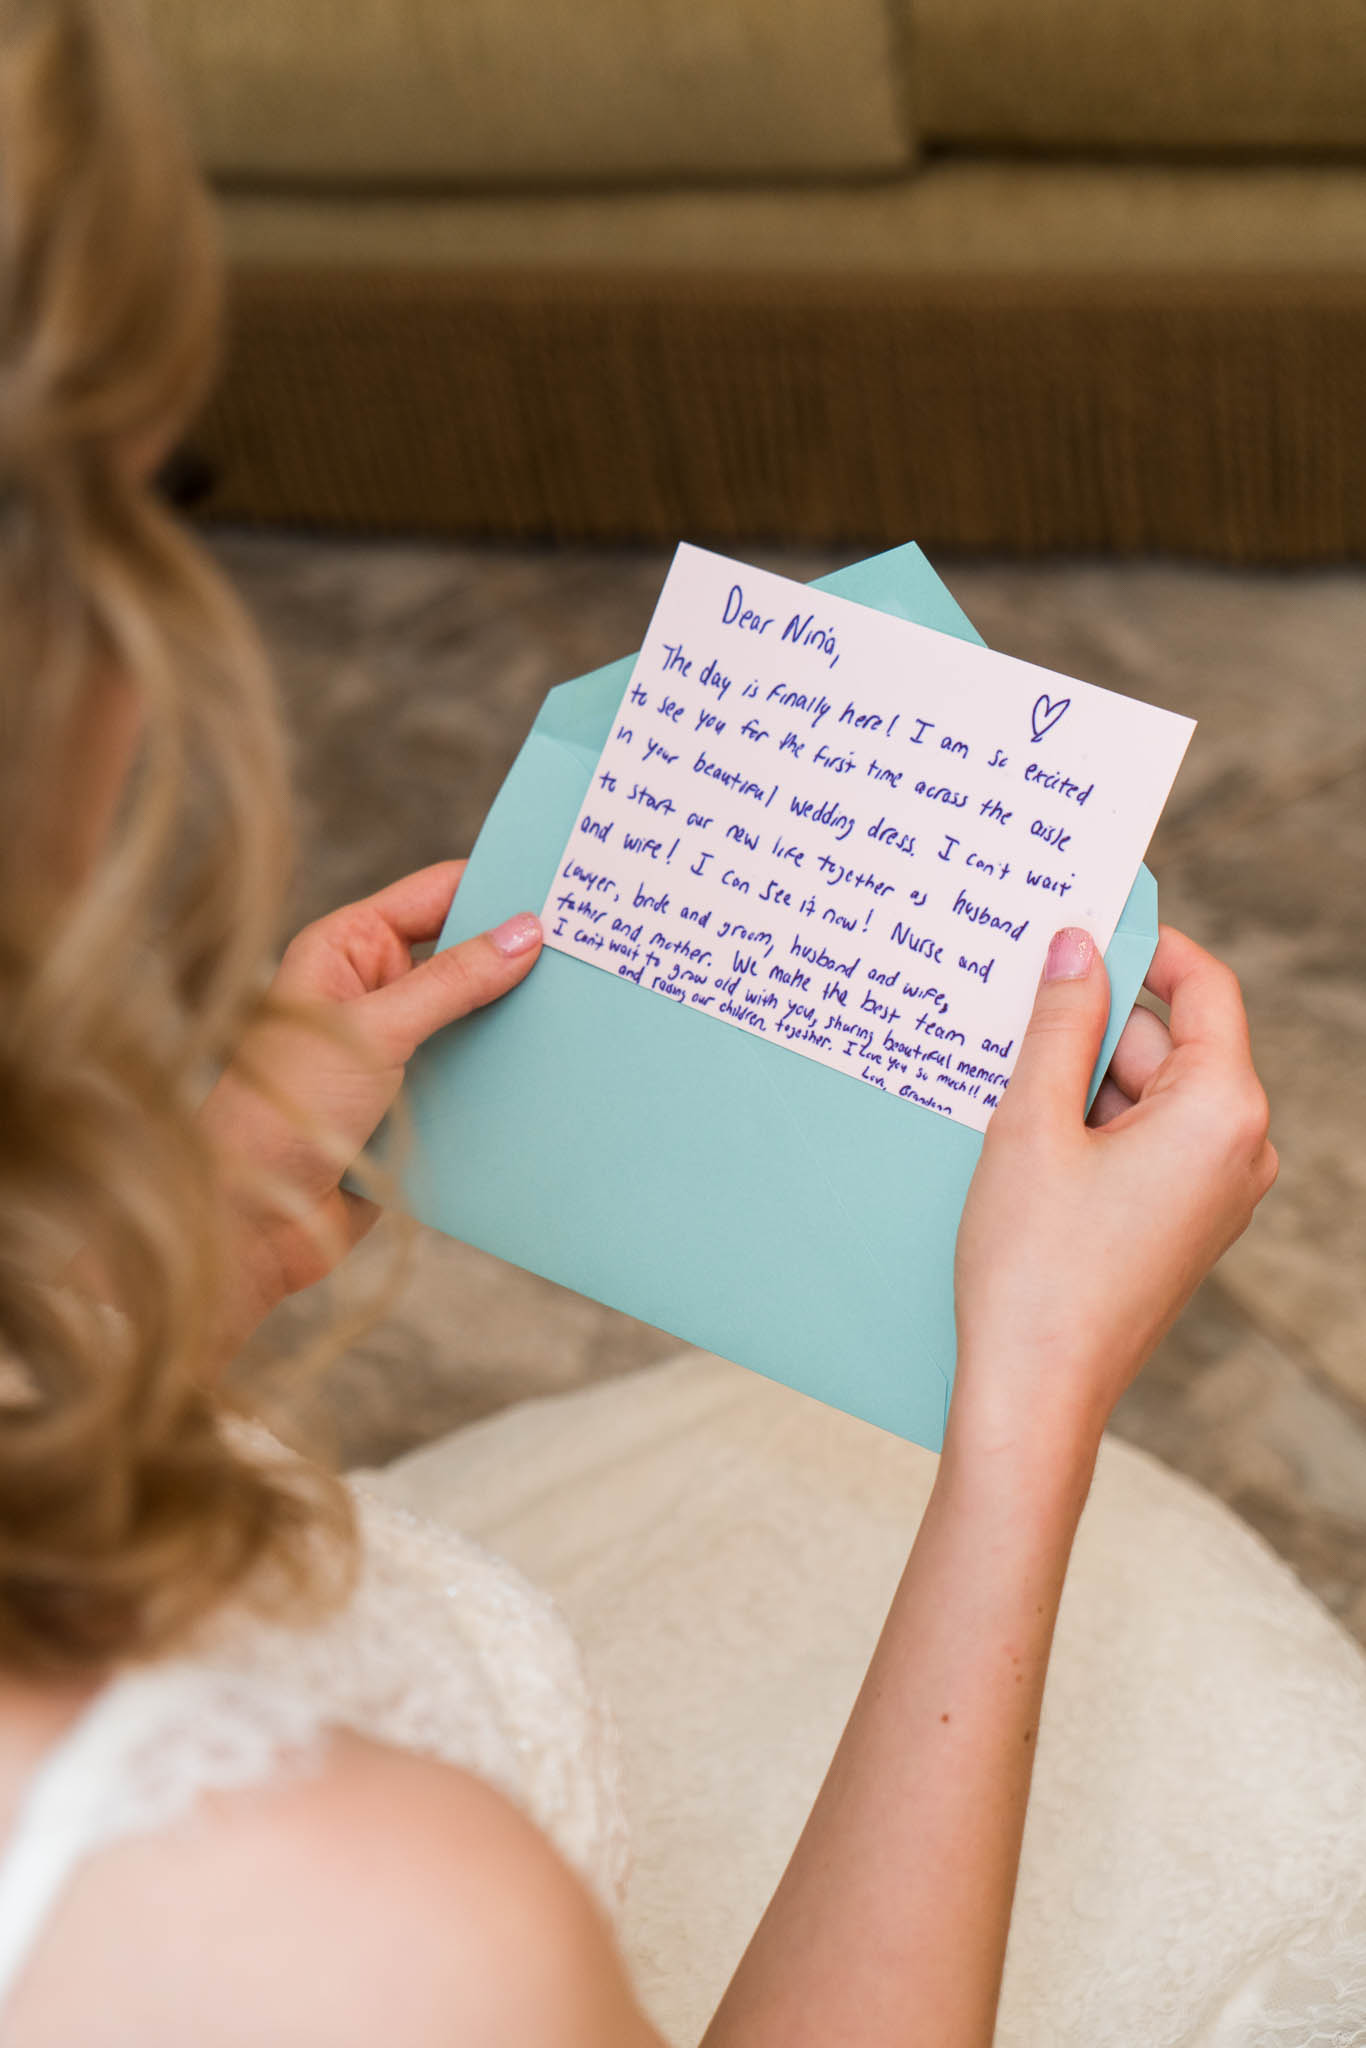 Dear Nina,
The day is finally here! I am so excited
to see you for the first time across the aisle
in your beautiful wedding dress. I can't wait
to start our new life together as husband
and wife! I can see it now! Nurse and
Lawyer, bride and groom, husband and wife,
father and mother. We make the best team and
I can't wait to grow old with you, sharing beautiful
and raising our children together. I love you so much!!
Love, Brandon